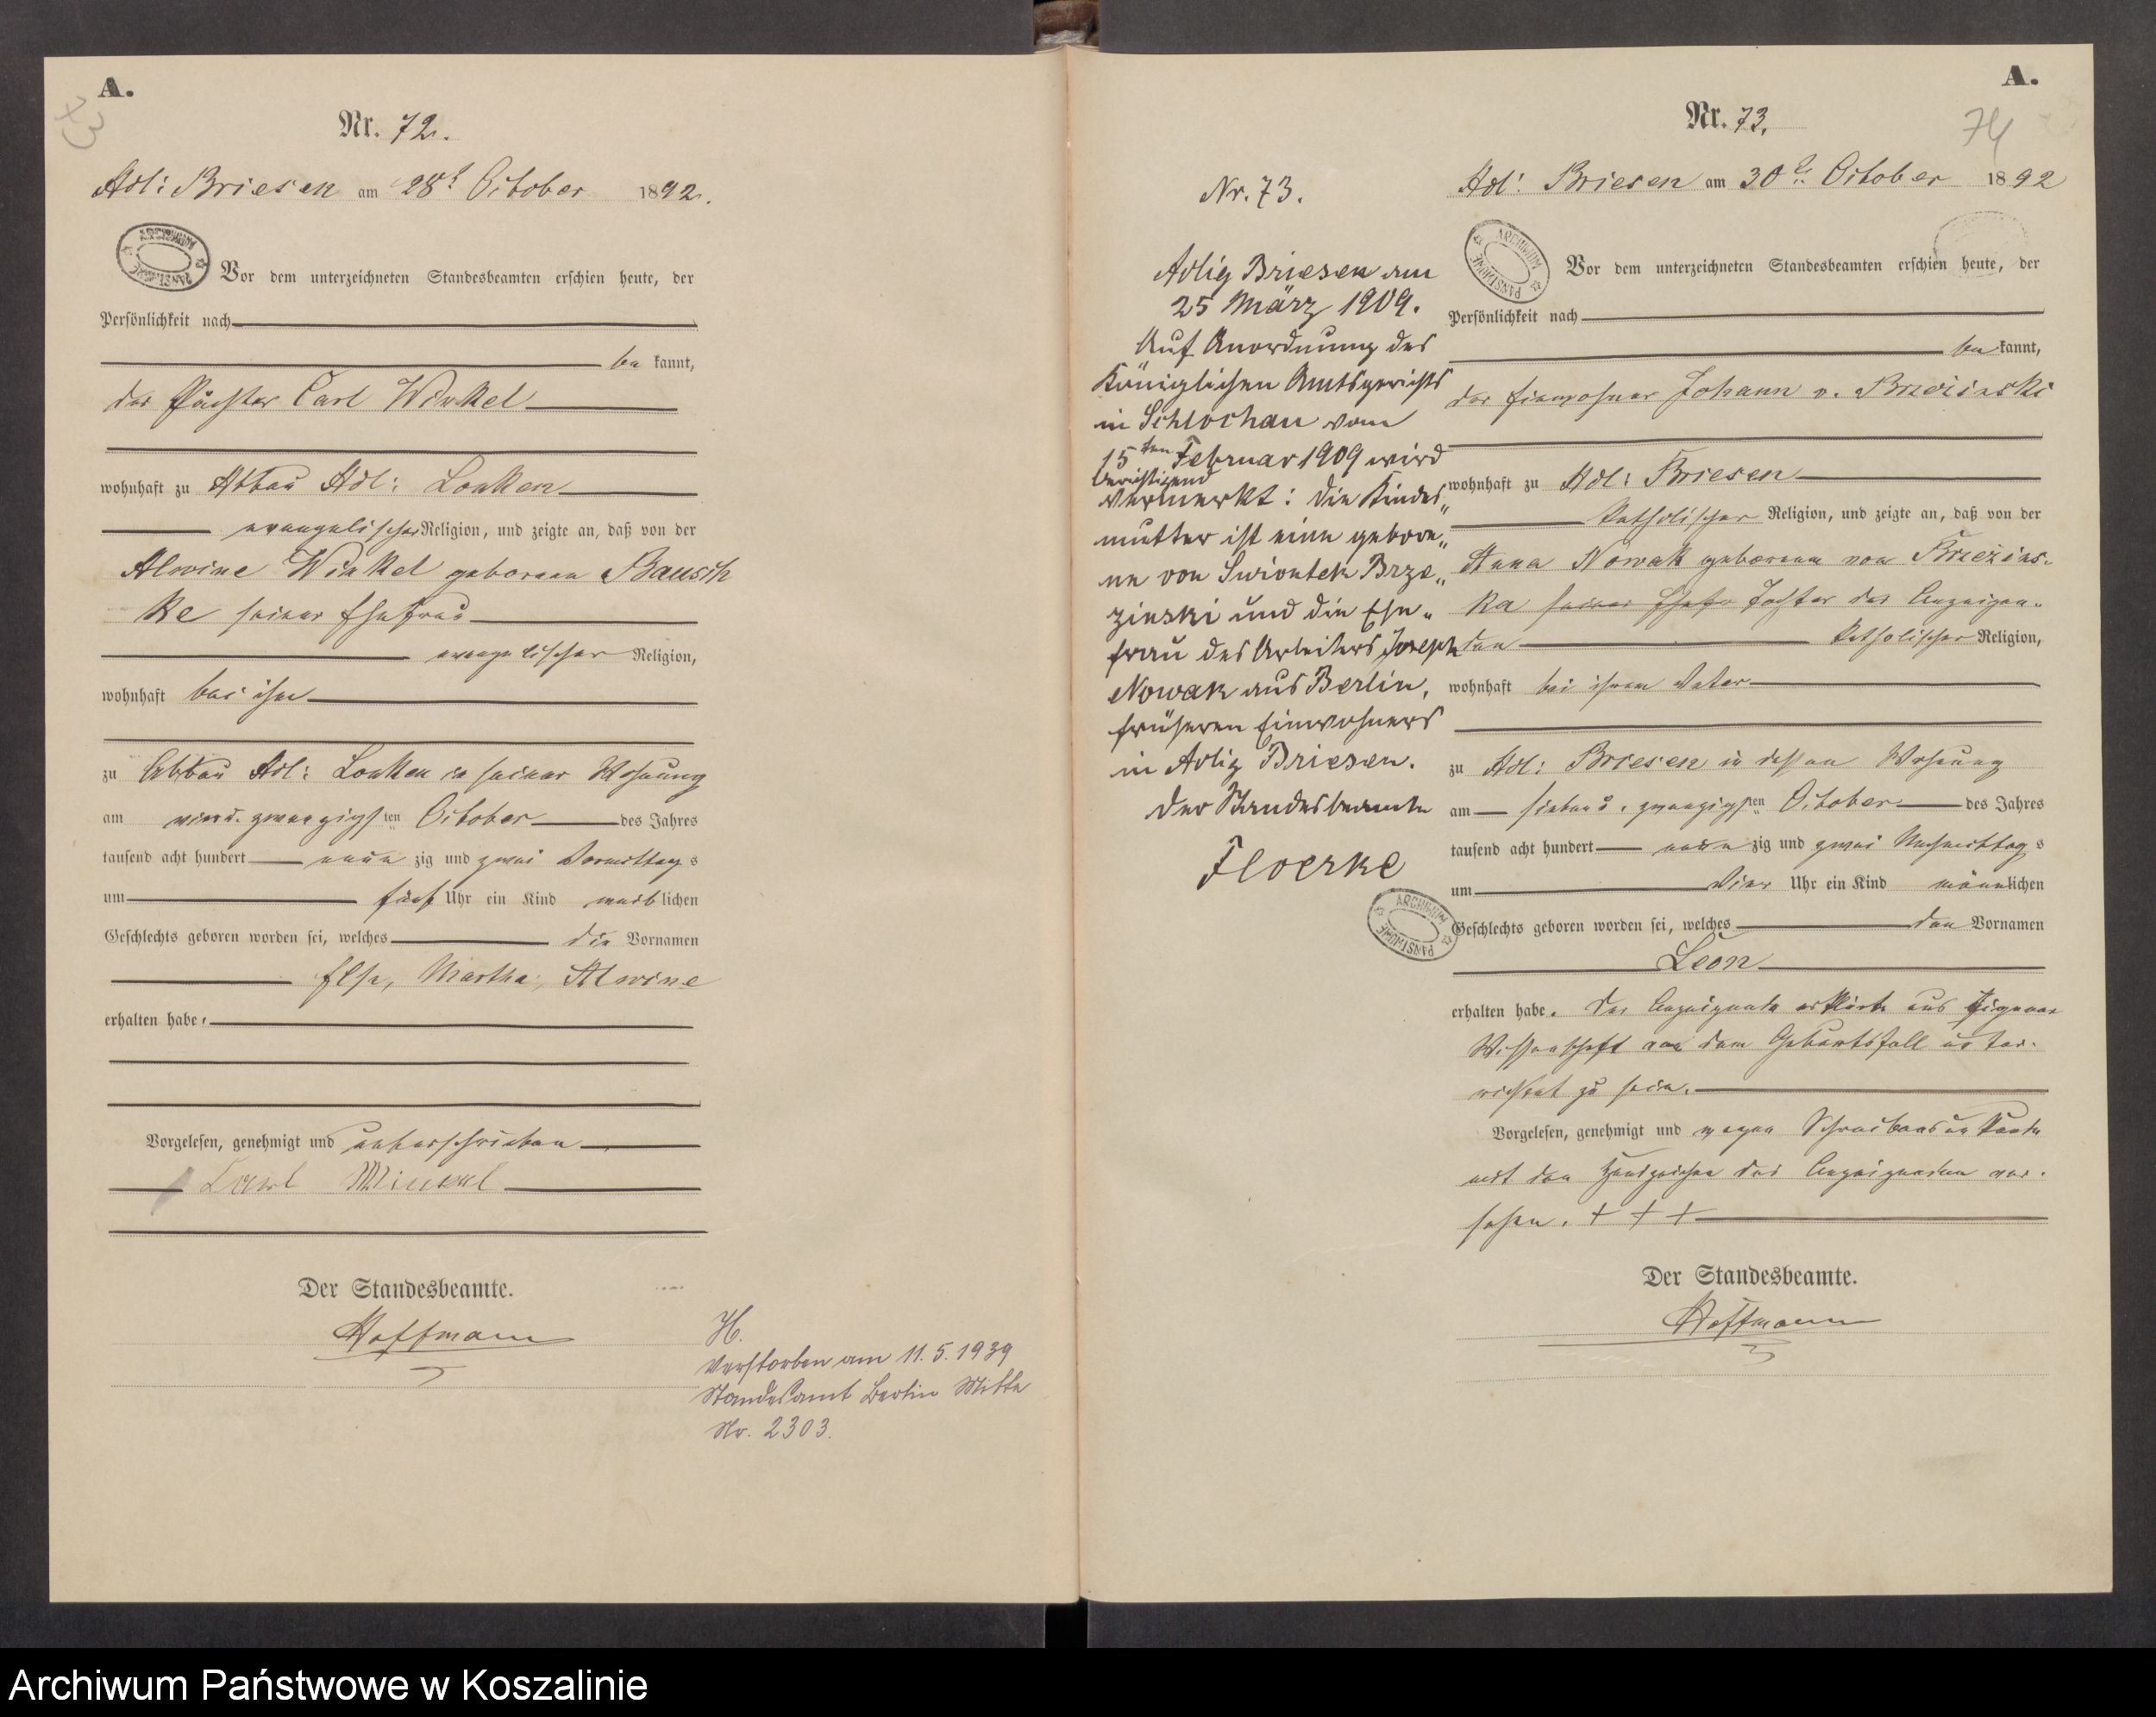 A.
73
Nr. 72.
Adl: Briesen am 28t October 1892.
ARCHIWUM PAŃSTWOWE
Vor dem unterzeichneten Standesbeamten erschien heute, der
Persönlichkeit nach
be kannt,
der Pächter Carl Winkel
wohnhaft zu Abbau Adl: Lonken
evangelischer Religion, und zeigte an, daß von der
Alwine Winkel geborenen Bausch
ke seiner Ehefrau
evangelischer Religion,
wohnhaft bei ihm
zu Abbau Adl: Lonken in seiner Wohnung
am vierd. zwanzigsten October des Jahres
tausend acht hundert neun zig und zwei Vormittag s
um fünf Uhr ein Kind weib lichen
Geschlechts geboren worden sei, welches die Vornamen
Else, Martha, Alwine
erhalten habe.
Vorgelesen, genehmigt und unterschrieben
Carl Winkel
Der Standesbeamte.
Hoffmann
H.
Verstorben am 11.5.1939
Standesamt Berlin Mitte
Nr. 2303.
A.
74
Nr. 73.
Adl: Briesen am 30t October 1892
ARCHIWUM PAŃSTWOWE
Vor dem unterzeichneten Standesbeamten erschien heute, der
Persönlichkeit nach
be kannt,
der Einwohner Johann v. Brzezinski
wohnhaft zu Adl: Briesen
katholischer Religion, und zeigte an, daß von der
Anna Nowak geborenen von Brzezins-
ka seiner Ehefr Tochter des Anzeigen-
den katholischer Religion,
wohnhaft bei ihrem Vater
zu Adl: Briesen in dessen Wohnung
am siebend. zwanzigsten October des Jahres
tausend acht hundert neun zig und zwei Nachmittag s
um vier Uhr ein Kind männlichen
Geschlechts geboren worden sei, welches den Vornamen
Leon
erhalten habe. Der Anzeigende erklärte aus Eigener
Wissenschaft von dem Geburtsfall unter-
richtet zu sein.
Vorgelesen, genehmigt und wegen Schreibensunkunde
mit den Handzeichen des Anzeigenden ver-
sehen. + + +
Der Standesbeamte.
Hoffmann
Nr. 73.
Adlig Briesen am
25 März 1909.
Auf Anordnung des
Königlichen Amtsgerichts
in Schlochau vom
15ten Februar 1909 wird
berichtigend
vermerkt: die Kindes„
mutter ist eine gebore„
ne von Swiontek Brze„
zinski und die Ehe„
frau des Arbeiters Joseph
Nowak aus Berlin,
früheren Einwohners
in Adlig Briesen.
Der Standesbeamte
Floerke
ARCHIWUM PAŃSTWOWE
Archiwum Państwowe w Koszalinie